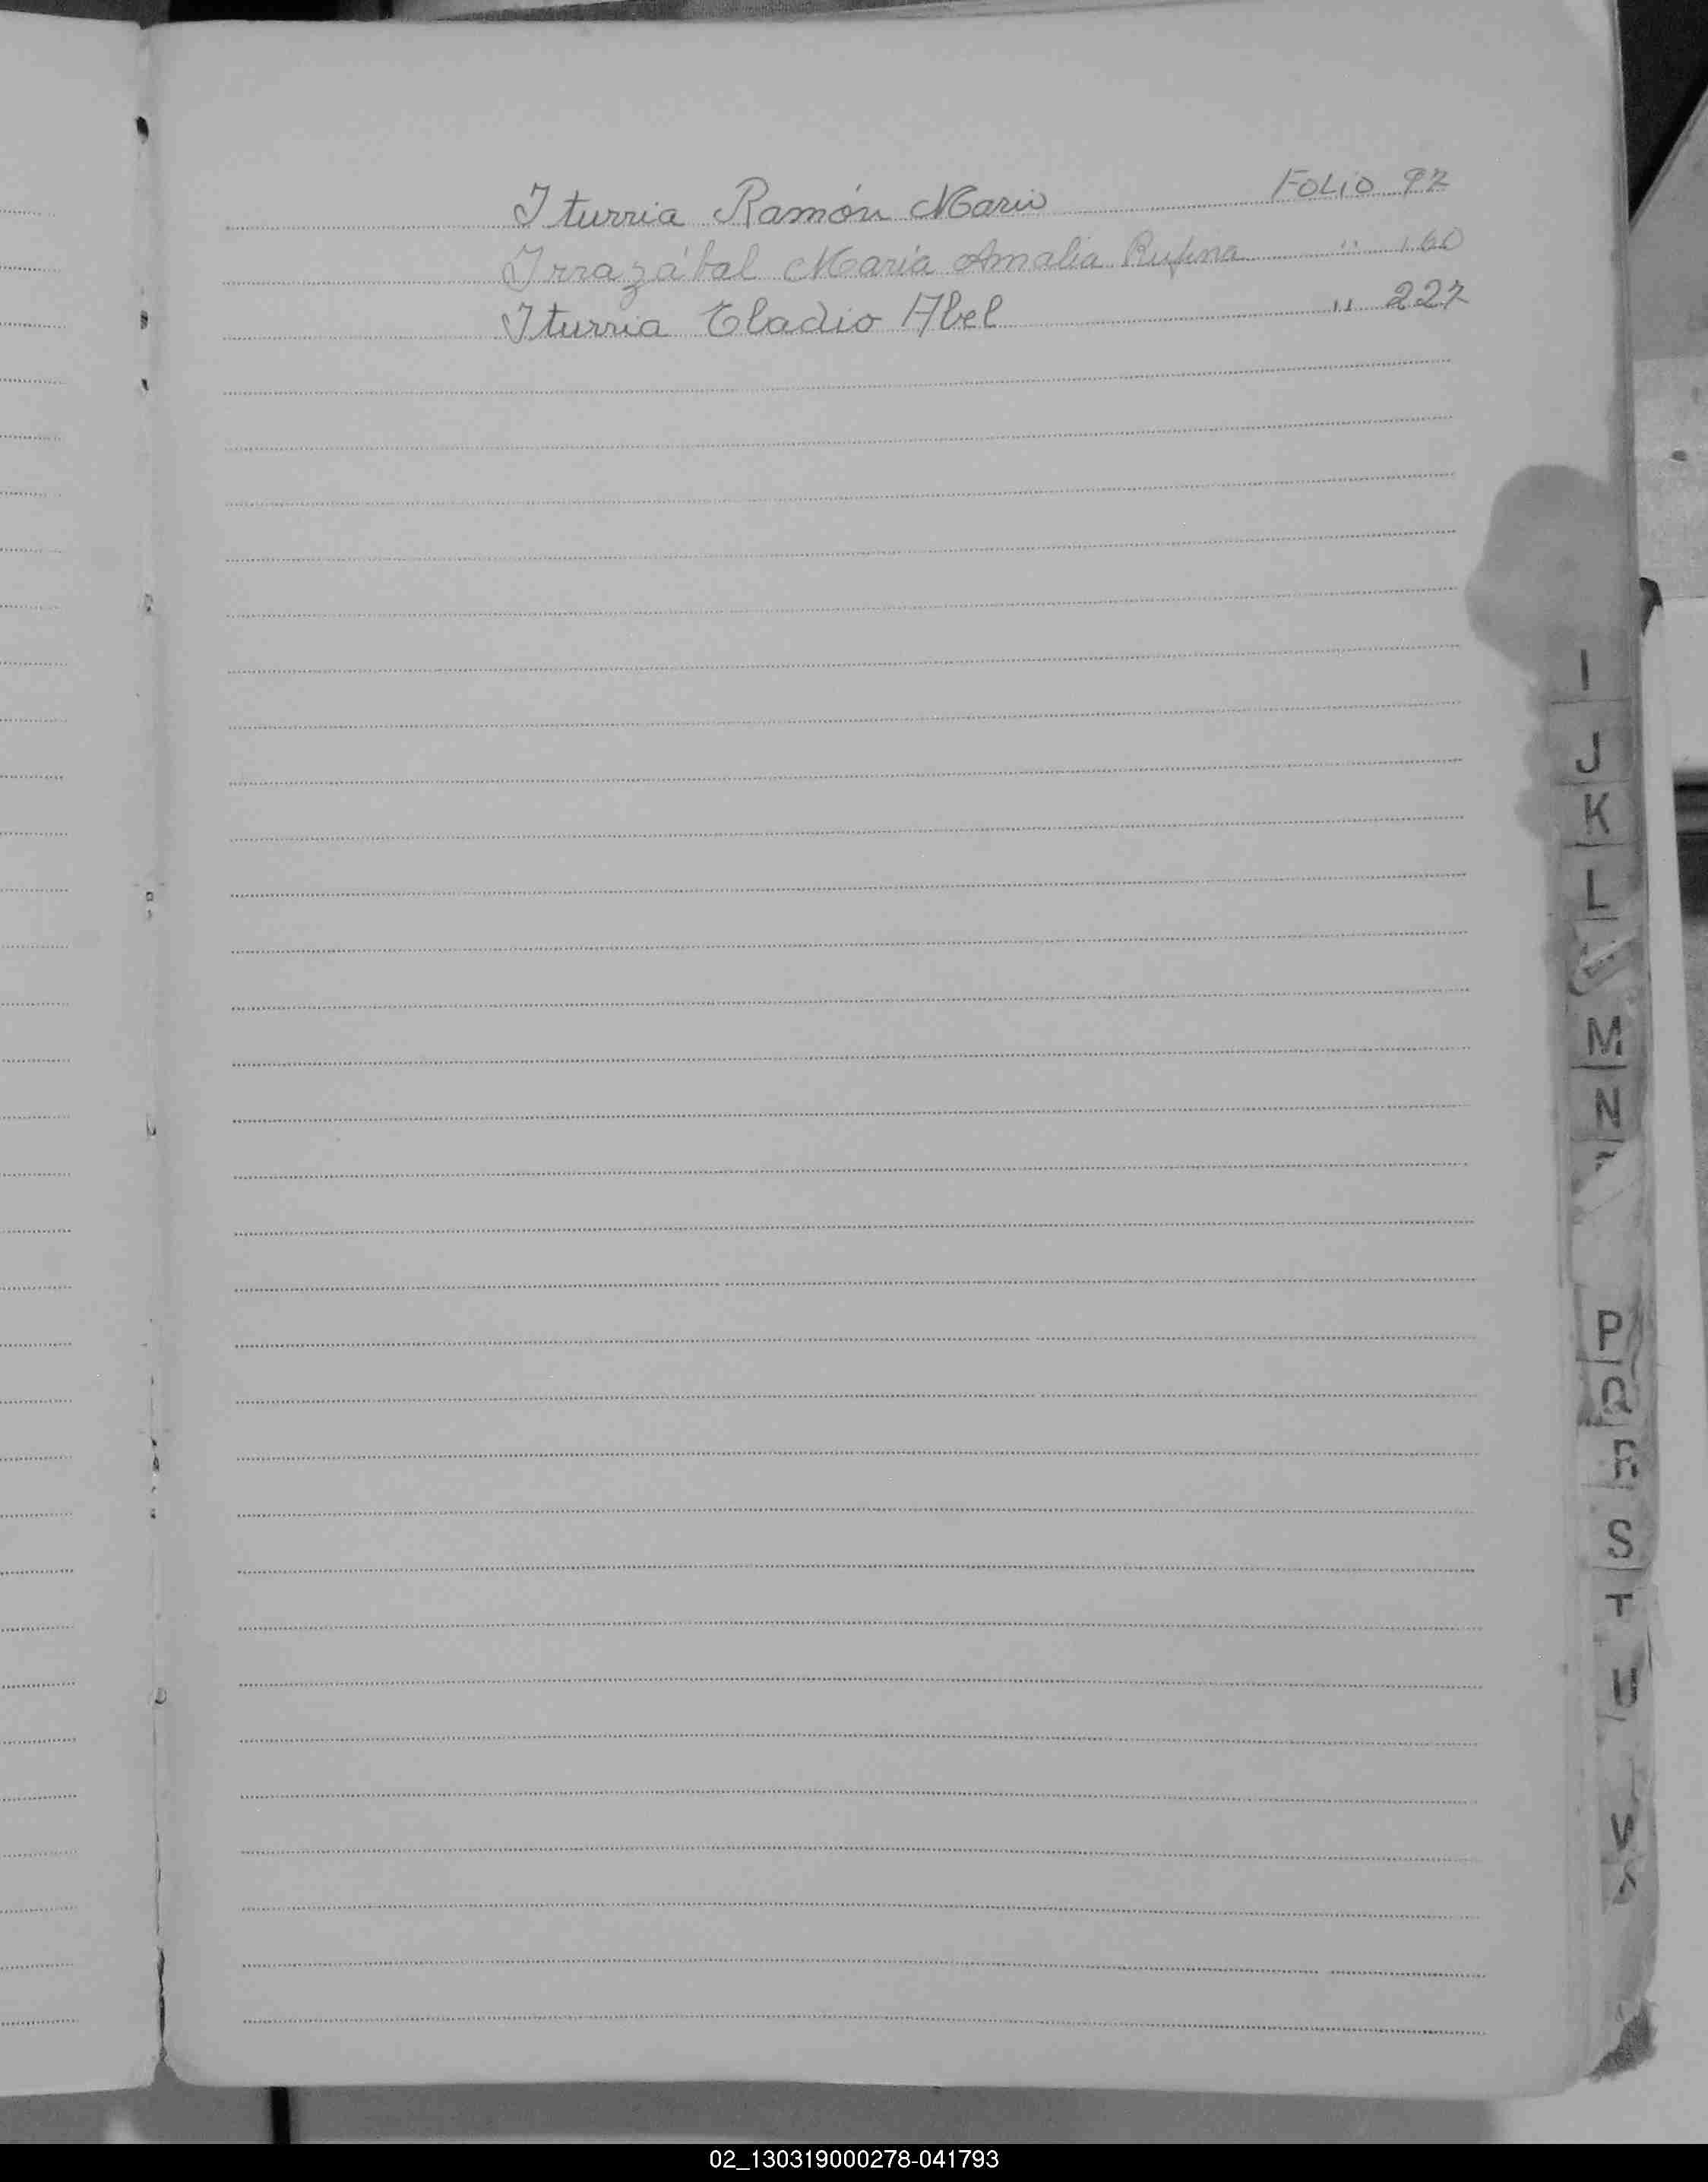 Iturria Ramón Mario FOLIO 92
Irrazábal María Amalia Rufina " 160
Iturria Eladio Abel " 227
I
J
K
L
M
N
P
Q
R
S
T
U
V
02_130319000278-041793